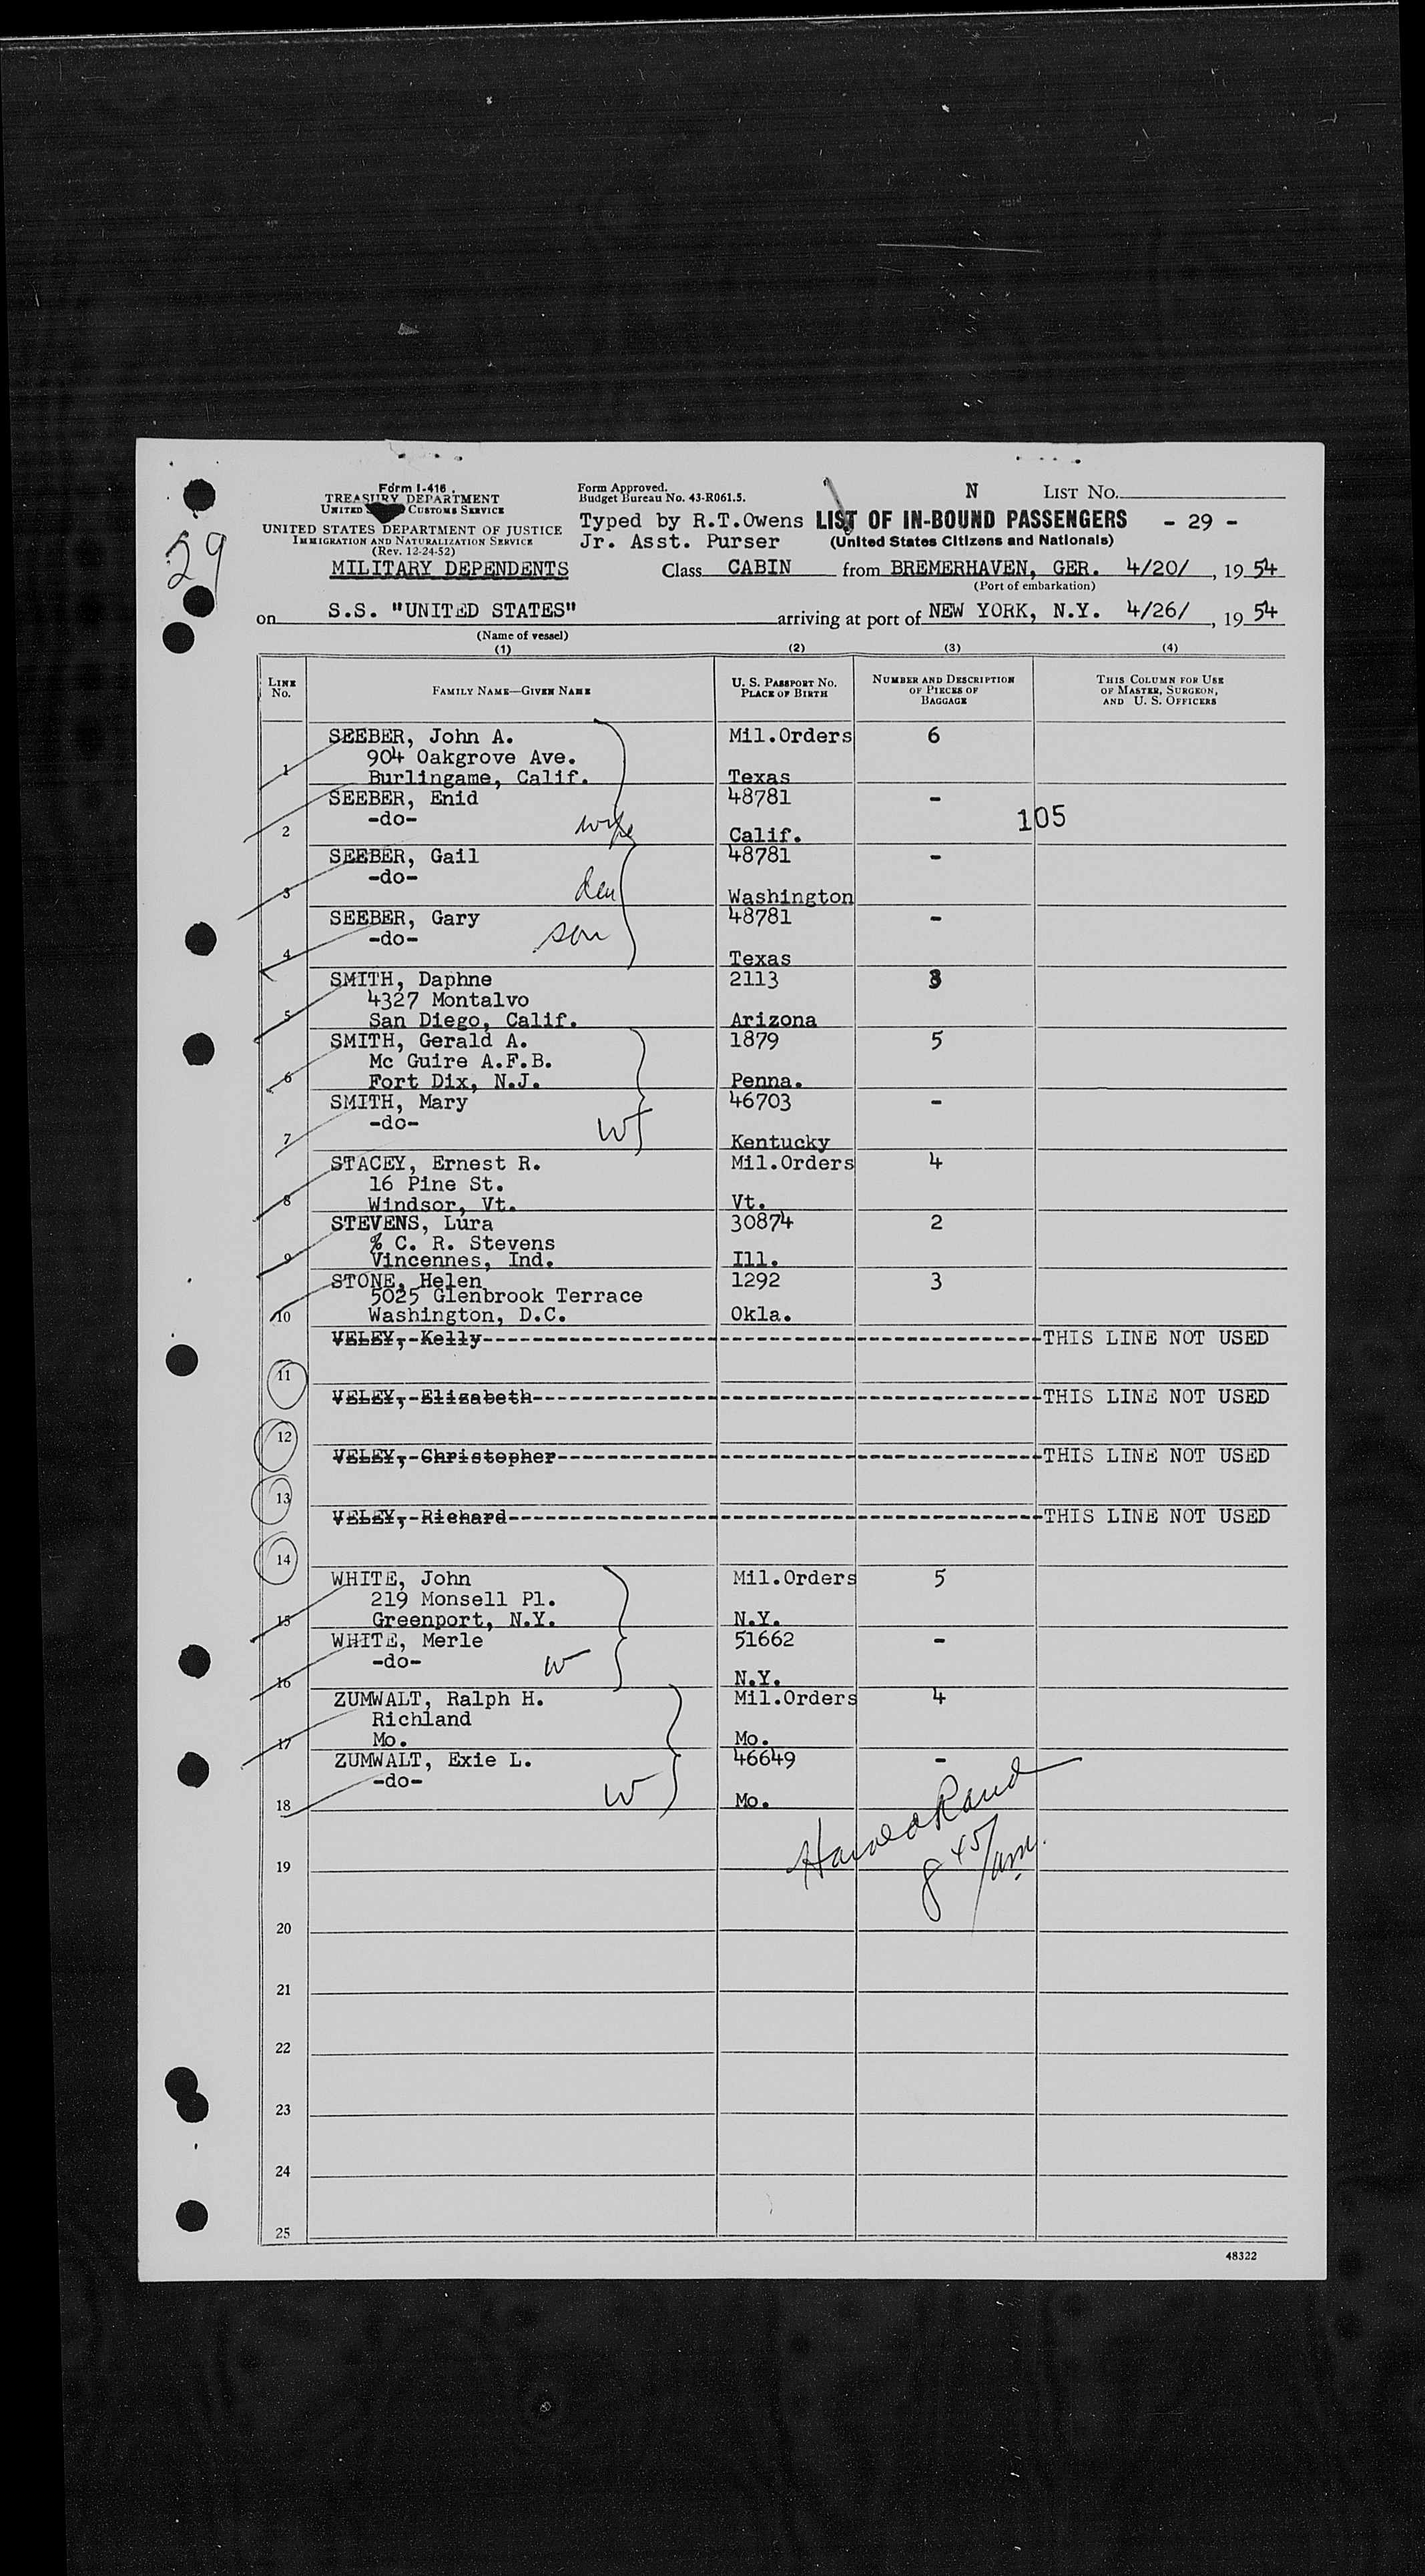 Form I-416
TREASURY DEPARTMENT
UNITED CUSTOMS SERVICE
UNITED STATES DEPARTMENT OF JUSTICE
IMMIGRATION AND NATURALIZATION SERVICE
(Rev. 12-24-52)
MILITARY DEPENDENTS
Form Approved.
Budget Bureau No. 43-R061.5.
Typed by R.T.Owens
Jr. Asst. Purser
N LIST No.
LIST OF IN-BOUND PASSENGERS - 29 -
(United States Citizens and Nationals)
29
Class CABIN from BREMERHAVEN, GER. 4/20/, 19 54
(Port of embarkation)
on S.S. "UNITED STATES" arriving at port of NEW YORK, N.Y. 4/26/, 19 54
(Name of vessel)
(1) (2) (3) (4)
LINE No. FAMILY NAME—GIVEN NAME U. S. PASSPORT NO. PLACE OF BIRTH NUMBER AND DESCRIPTION OF PIECES OF BAGGAGE THIS COLUMN FOR USE OF MASTER, SURGEON, AND U. S. OFFICERS
SEEBER, John A. Mil.Orders 6
904 Oakgrove Ave.
1 Burlingame, Calif. Texas
SEEBER, Enid 48781 -
-do- 105
2 wife Calif.
SEEBER, Gail 48781 -
-do-
3 Washington
SEEBER, Gary 48781 -
-do- son
4 Texas
SMITH, Daphne 2113 3
4327 Montalvo
5 San Diego, Calif. Arizona
SMITH, Gerald A. 1879 5
Mc Guire A.F.B.
6 Fort Dix, N.J. Penna.
SMITH, Mary 46703 -
-do- W
7 Kentucky
STACEY, Ernest R. Mil.Orders 4
16 Pine St.
8 Windsor, Vt. Vt.
STEVENS, Lura 30874 2
% C. R. Stevens
9 Vincennes, Ind. Ill.
STONE, Helen 1292 3
5025 Glenbrook Terrace
10 Washington, D.C. Okla.
VELEY, Kelly THIS LINE NOT USED
11
VELEY, Elizabeth THIS LINE NOT USED
12
VELEY, Christopher THIS LINE NOT USED
13
VELEY, Richard THIS LINE NOT USED
14
WHITE, John Mil.Orders 5
219 Monsell Pl.
15 Greenport, N.Y. N.Y.
WHITE, Merle 51662 -
-do- W
16 N.Y.
ZUMWALT, Ralph H. Mil.Orders 4
Richland
17 Mo. Mo.
ZUMWALT, Exie L. 46649 -
-do- W
18 Mo.
8 45/am.
19
20
21
22
23
24
25
48322